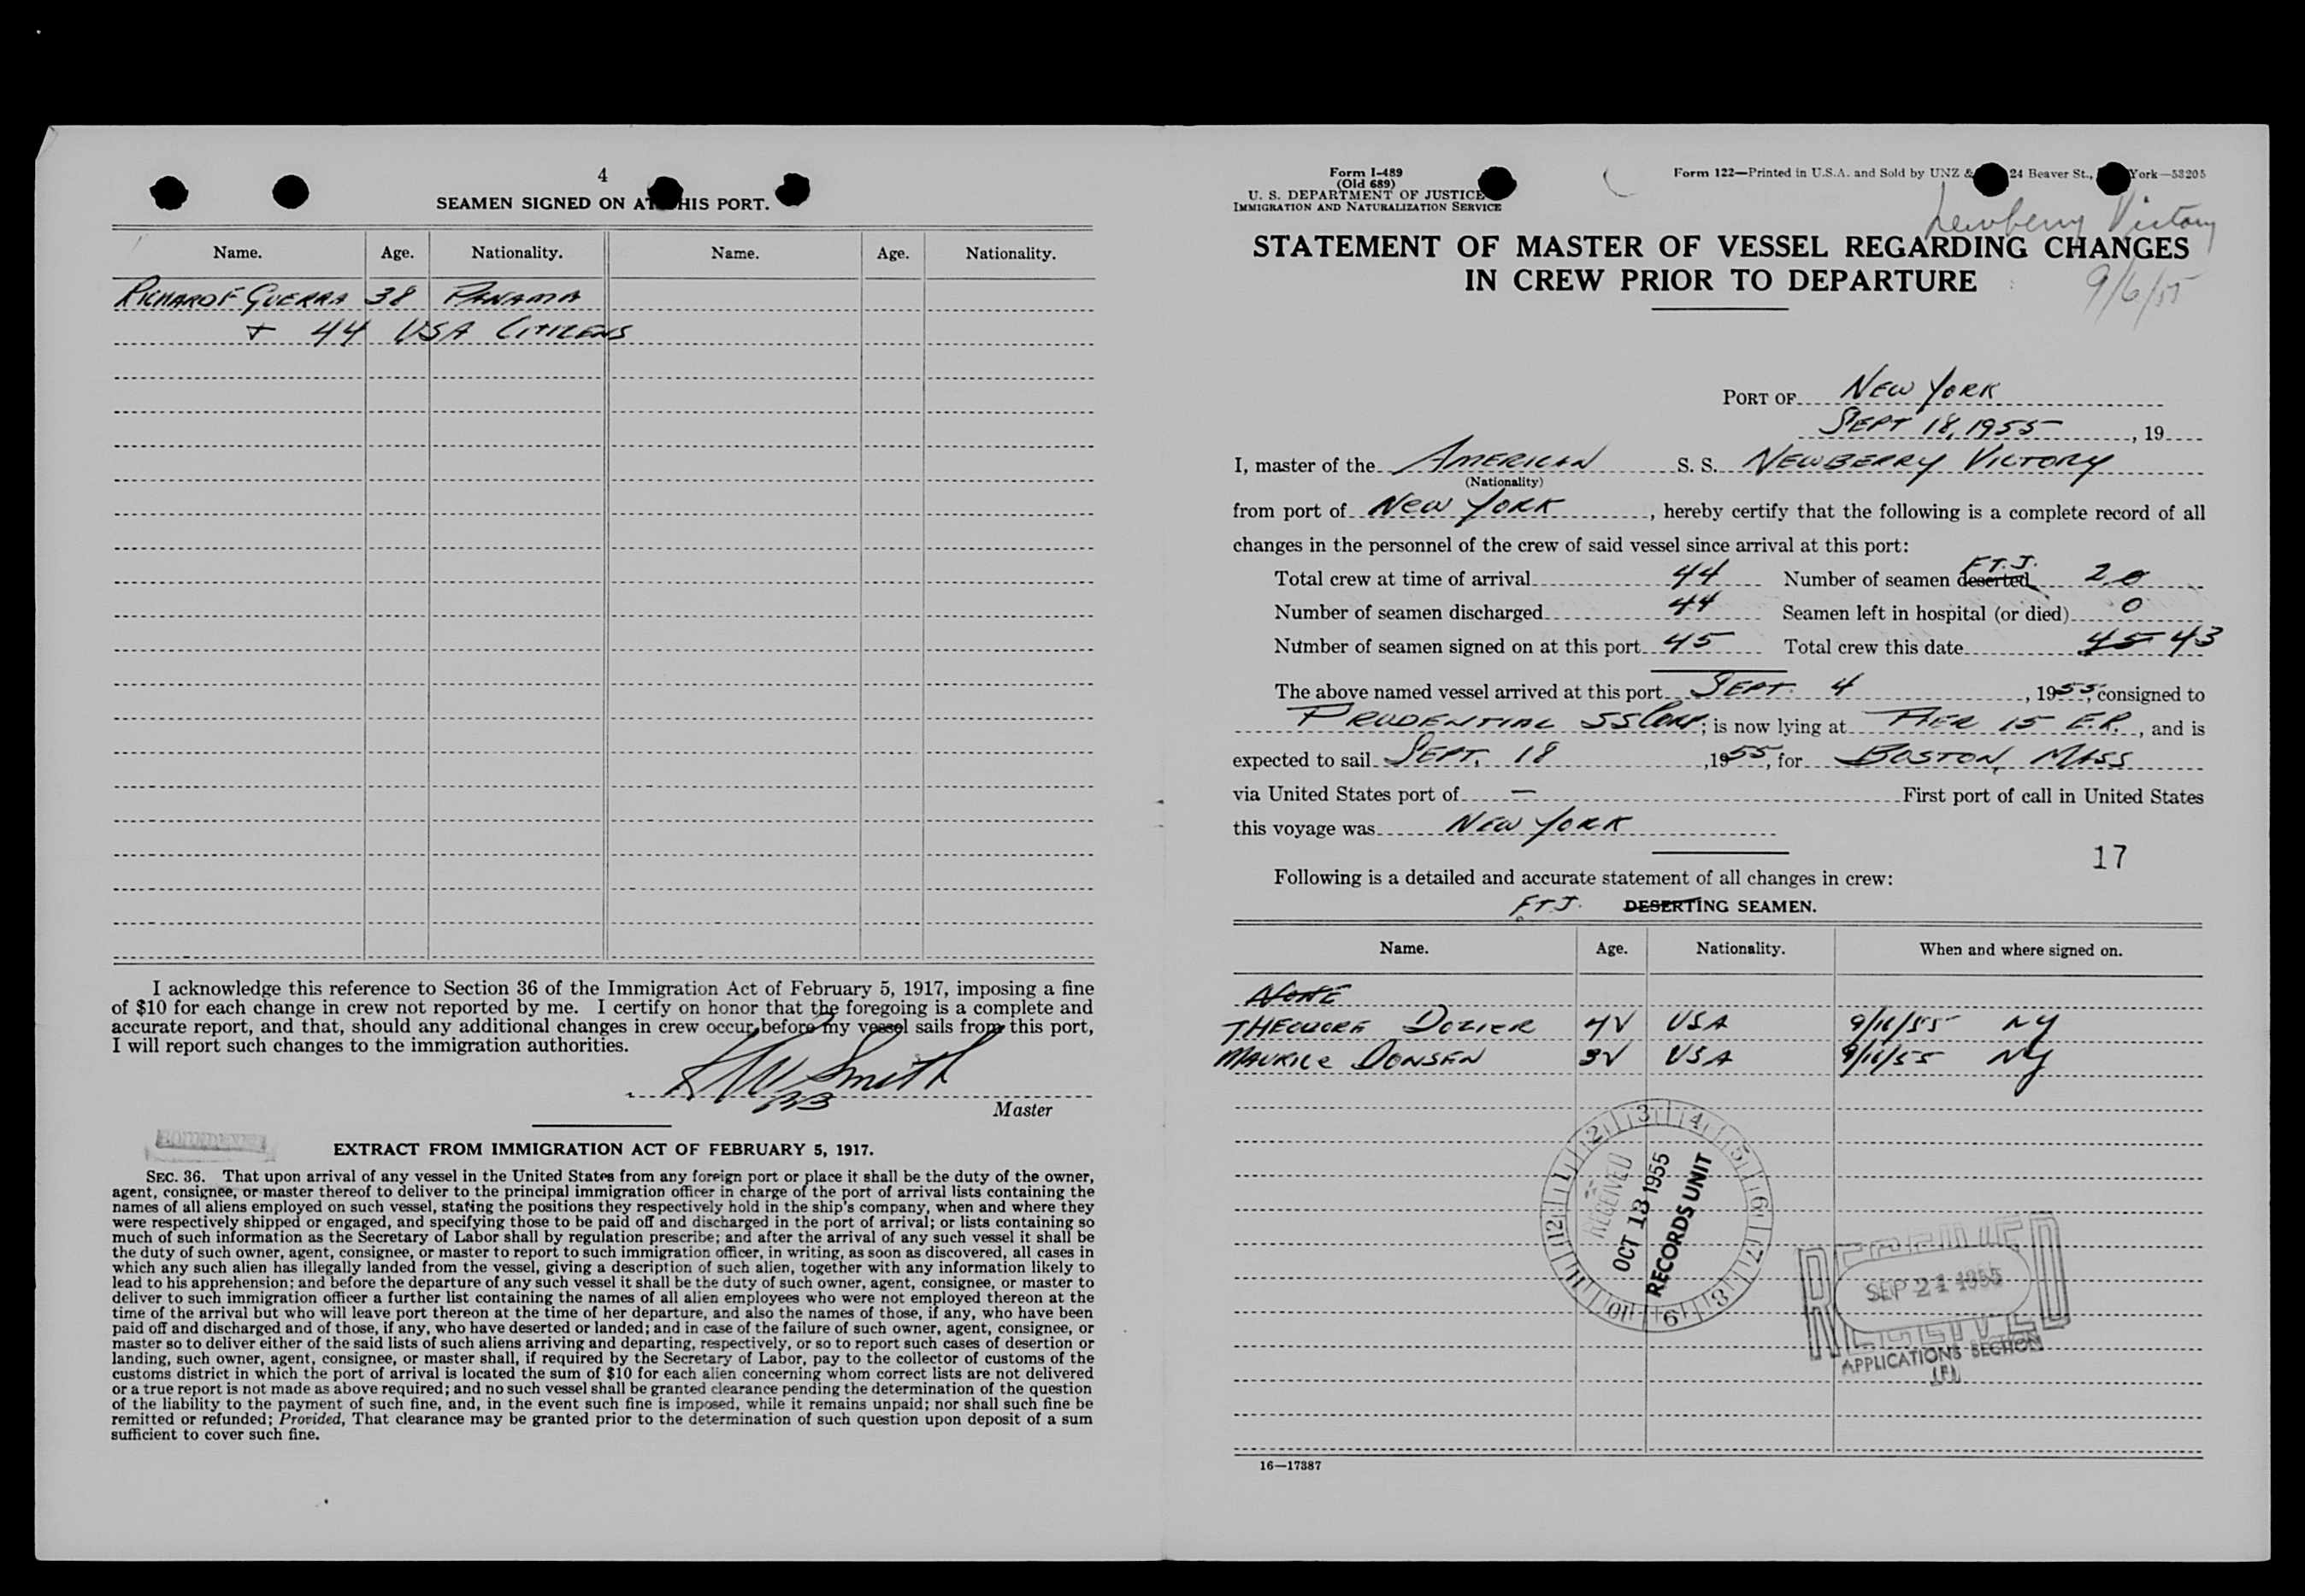 4
SEAMEN SIGNED ON AT THIS PORT.
Name. Age. Nationality. Name. Age. Nationality.
RICHARD F GUERRA 38 PANAMA
+ 44 USA CITIZENS
I acknowledge this reference to Section 36 of the Immigration Act of February 5, 1917, imposing a fine
of $10 for each change in crew not reported by me. I certify on honor that the foregoing is a complete and
accurate report, and that, should any additional changes in crew occur before my vessel sails from this port,
I will report such changes to the immigration authorities.
Smith
Master
EXTRACT FROM IMMIGRATION ACT OF FEBRUARY 5, 1917.
SEC. 36. That upon arrival of any vessel in the United States from any foreign port or place it shall be the duty of the owner,
agent, consignee, or master thereof to deliver to the principal immigration officer in charge of the port of arrival lists containing the
names of all aliens employed on such vessel, stating the positions they respectively hold in the ship's company, when and where they
were respectively shipped or engaged, and specifying those to be paid off and discharged in the port of arrival; or lists containing so
much of such information as the Secretary of Labor shall by regulation prescribe; and after the arrival of any such vessel it shall be
the duty of such owner, agent, consignee, or master to report to such immigration officer, in writing, as soon as discovered, all cases in
which any such alien has illegally landed from the vessel, giving a description of such alien, together with any information likely to
lead to his apprehension; and before the departure of any such vessel it shall be the duty of such owner, agent, consignee, or master to
deliver to such immigration officer a further list containing the names of all alien employees who were not employed thereon at the
time of the arrival but who will leave port thereon at the time of her departure, and also the names of those, if any, who have been
paid off and discharged and of those, if any, who have deserted or landed; and in case of the failure of such owner, agent, consignee, or
master so to deliver either of the said lists of such aliens arriving and departing, respectively, or so to report such cases of desertion or
landing, such owner, agent, consignee, or master shall, if required by the Secretary of Labor, pay to the collector of customs of the
customs district in which the port of arrival is located the sum of $10 for each alien concerning whom correct lists are not delivered
or a true report is not made as above required; and no such vessel shall be granted clearance pending the determination of the question
of the liability to the payment of such fine, and, in the event such fine is imposed, while it remains unpaid; nor shall such fine be
remitted or refunded; Provided, That clearance may be granted prior to the determination of such question upon deposit of a sum
sufficient to cover such fine.
Form I-489
(Old 689)
U. S. DEPARTMENT OF JUSTICE
IMMIGRATION AND NATURALIZATION SERVICE
Form 122—Printed in U.S.A. and Sold by UNZ & 24 Beaver St., York—53205
Newberry Victory
STATEMENT OF MASTER OF VESSEL REGARDING CHANGES
IN CREW PRIOR TO DEPARTURE
9/6/55
PORT OF NEW YORK
SEPT 18, 1955, 19
I, master of the AMERICAN S. S. NEWBERRY VICTORY
(Nationality)
from port of NEW YORK, hereby certify that the following is a complete record of all
changes in the personnel of the crew of said vessel since arrival at this port:
F.T.J.
Total crew at time of arrival 44 Number of seamen deserted 2 0
Number of seamen discharged 44 Seamen left in hospital (or died) 0
Number of seamen signed on at this port 45 Total crew this date 45 43
The above named vessel arrived at this port SEPT. 4, 1955, consigned to
PRUDENTIAL SS CORP; is now lying at PIER 15 E.R., and is
expected to sail SEPT. 18, 1955, for BOSTON, MASS
via United States port of — First port of call in United States
this voyage was NEW YORK
17
Following is a detailed and accurate statement of all changes in crew:
F.T.J. DESERTING SEAMEN.
Name. Age. Nationality. When and where signed on.
NONE
THEODORE DOZIER USA 9/16/55 NY
MAURICE DONSEN USA 9/16/55 NY
RECEIVED
OCT 13 1955
RECORDS UNIT
1 2 3 4 5 6 7 8 9 10 11 12
RECEIVED
SEP 21 1955
APPLICATIONS SECTION
16—17387